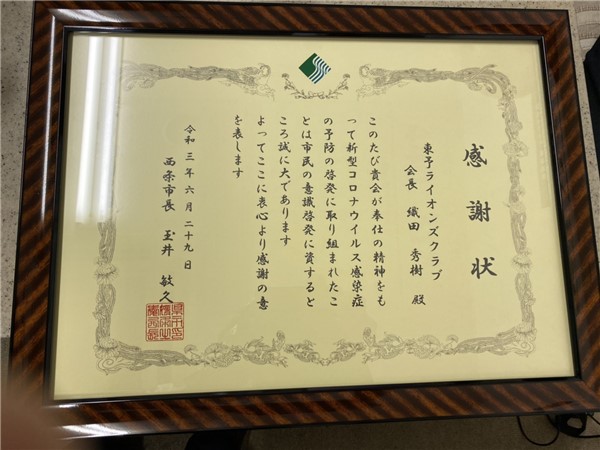 感謝状
東予ライオンズクラブ
会長 織田 秀樹 殿
このたび貴会が奉仕の精神をも
って新型コロナウイルス感染症
の予防の啓発に取り組まれたこ
とは市民の意識啓発に資すると
ころ誠に大であります
よってここに衷心より感謝の意
を表します
令和三年六月二十九日
西条市長 玉井 敏久